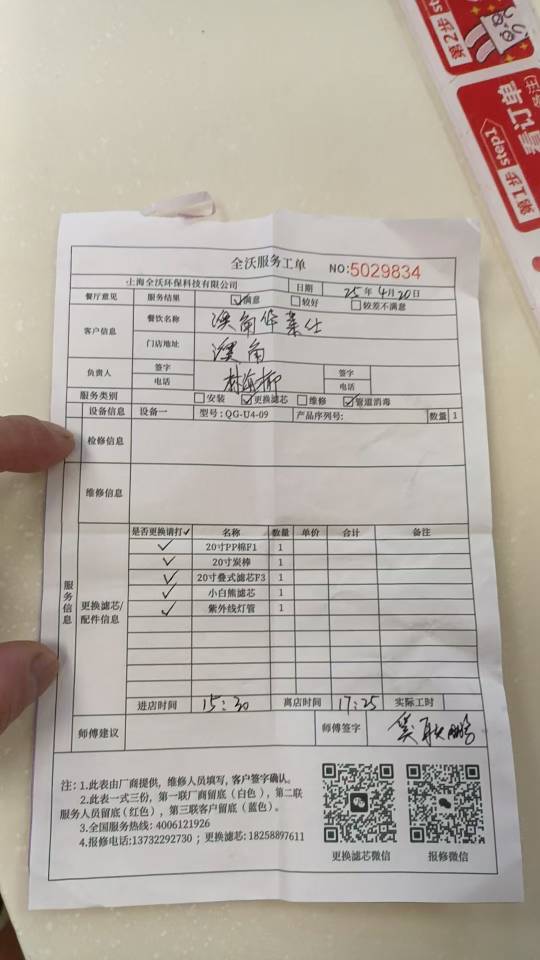 第2步 st
第1步 step1
看订单
全沃服务工单 NO:5029834
上海全沃环保科技有限公司 日期 25年4月20日
餐厅意见 服务结果 ☑满意 □较好 □较差不满意
客户信息 餐饮名称 澳角华莱仕
门店地址 澳角
负责人 签字 林海柳 签字
电话 电话
服务类别 □安装 ☑更换滤芯 □维修 ☑管道消毒
设备信息 设备一 型号:QG-U4-09 产品序列号: 数量 1
检修信息
维修信息
服务信息
更换滤芯/配件信息
是否更换请打✓ 名称 数量 单价 合计 备注
✓ 20寸PP棉F1 1
✓ 20寸炭棒 1
✓ 20寸叠式滤芯F3 1
✓ 小白熊滤芯 1
✓ 紫外线灯管 1
进店时间 15:30 离店时间 17:25 实际工时
师傅建议 师傅签字
注:1.此表由厂商提供,维修人员填写,客户签字确认。
2.此表一式三份,第一联厂商留底(白色),第二联
服务人员留底(红色),第三联客户留底(蓝色)。
3.全国服务热线: 4006121926
4.报修电话:13732292730 ; 更换滤芯:18258897611
更换滤芯微信 报修微信